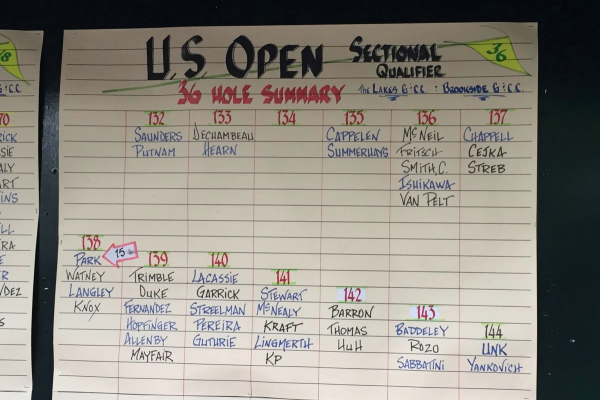 U.S. OPEN SECTIONAL QUALIFIER
36
36 HOLE SUMMARY THE LAKES G&CC • BROOKSIDE G&CC
132 133 134 135 136 137
SAUNDERS DECHAMBEAU CAPPELEN MCNEIL CHAPPELL
PUTNAM HEARN SUMMERHAYS FRITSCH CEJKA
SMITH, C. STREB
ISHIKAWA
VAN PELT
138
PARK 15
WATNEY
LANGLEY
KNOX
139
TRIMBLE
DUKE
FERNANDEZ
HOPFINGER
ALLENBY
MAYFAIR
140
LACASSIE
GARRICK
STREELMAN
PEREIRA
GUTHRIE
141
STEWART
MCNEALY
KRAFT
LINGMERTH
KP
142
BARRON
THOMAS
HUH
143
BADDELEY
ROZO
SABBATINI
144
LINK
YANKOVICH